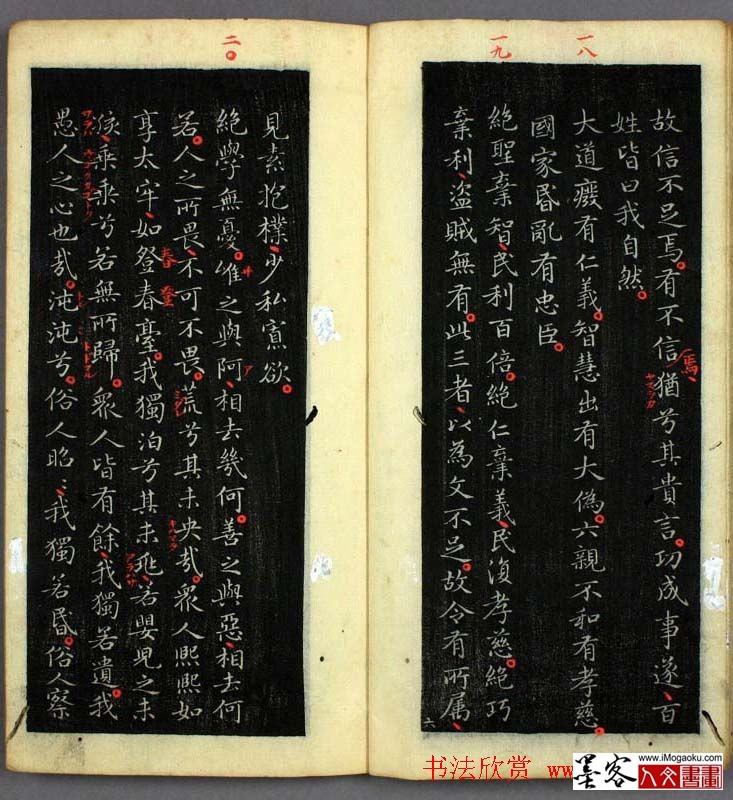 一八
一九
故信不足焉。有不信。猶兮其貴言。功成事遂、百
焉
姓皆曰我自然。
大道癈有仁義。智慧出有大偽。六親不和有孝慈。
國家昬亂有忠臣。
絶聖棄智、民利百倍。絶仁棄義、民復孝慈。絶巧
棄利、盜賊無有。此三者、以為文不足。故令有所属、
六
二〇
見素抱樸、少私寡欲。
絶學無憂。唯之與阿、相去幾何。善之與惡、相去何
ア
若。人之所畏、不可不畏。荒兮其未央哉。眾人熙熙如
春登
享太牢、如登春臺。我獨泊兮其未兆、若嬰兒之未
孩、乘乘兮若無所歸。眾人皆有餘、我獨若遺。我
愚人之心也哉。沌沌兮。俗人昭〻、我獨若昬。俗人察
书法欣赏 www
墨客
人文書畫
www.iMogaoku.com